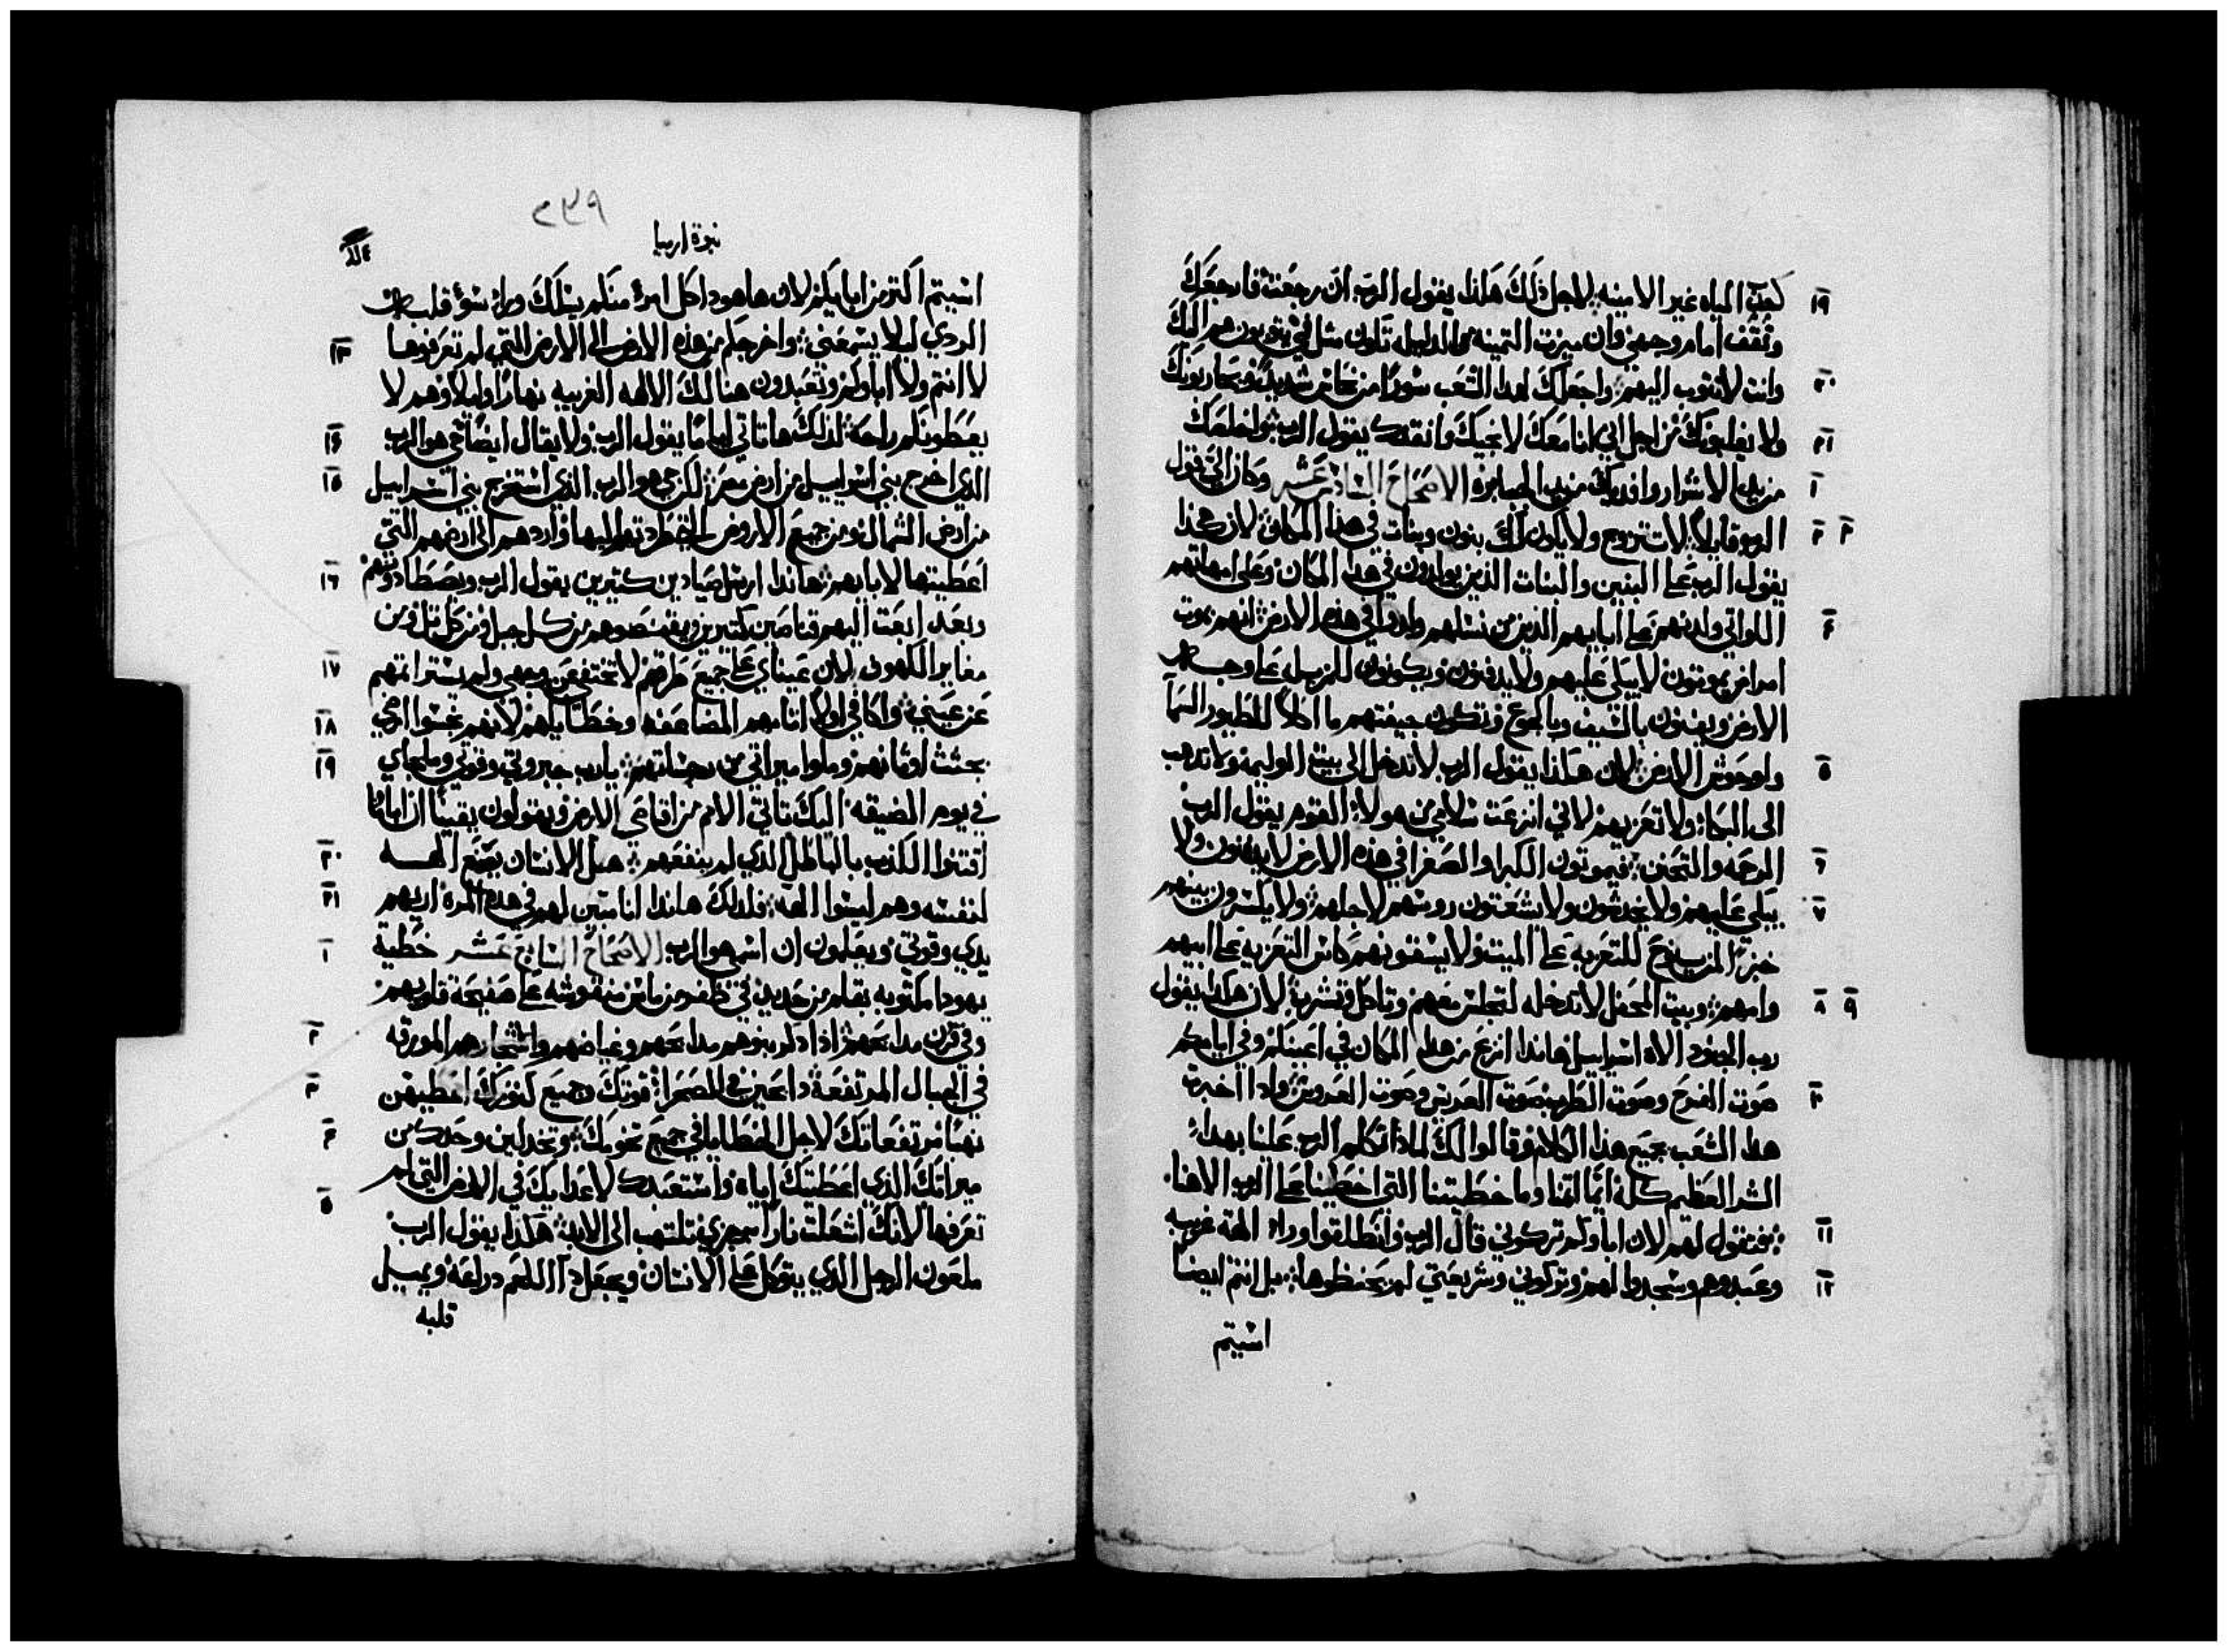 كعبّ المياه غير الامينه لاجل ذلك هكذا يقول الربّ ان رجعت فارجعك ١٩
وتقف امام وجهي وان ميزت التمينه من الدليله تكون مثل في يتوبون هم اليك
وانت لا تتوب اليهم واجعلك لهدا الشعب سورًا من نحاس شديد ويحاربونك ٢٠
ولا يغلبونك من اجل اني انا معك لانجيك وانقدك يقول الرب واخلصك ٢١
من يد الاشرار وافديك من يد الجبابره الاصحاح السادس عشر وكان اليّ قول ١
الرب قايلاً لا تتزوج ولا يكون لك بنون وبنات في هذا المكان لان هكذا ٢ ٣
يقول الرب على البنين والبنات الذين يولدون في هدا المكان وعلى امهاتهم
اللواتي ولدنهم وعلى ابايهم الذين من نسلهم ولدوا في هذه الارض انهم بموت ٤
امراض يموتون لا يبكى عليهم ولا يدفنون ويكونون للزبل على وجه
الارض ويفنون بالسيف وبالجوع وتكون جيفتهم ماكلاً للطيور السمآ
ولوحوش الارض لان هكذا يقول الرب لا تدخل الى بيت الوليمه ولا تدهب ٥
الى البكاء ولا تعزيهم لاني انزعت سلامي من هولاء القوم يقول الرب
الرحمه والتحنن فيموتون الكبرا والصغرا في هذه الارض لا يدفنون ولا ٦
يبكي عليهم ولا يخدشون ولا يشعتون روسهم لاجلهم ولا يكسرون بينهم ٧
خبزًا لمن ينوح للتعزيه على الميت ولا يسقونهم كاس التعزيه على ابيهم
وامهم وبيت المحفل لا تدخله لتجلس معهم وتاكل وتشرب لان هكدا يقول ٨ ٩
رب الجنود الاه اسراييل هاندا انزع من هدا المكان في اعينكم وفي ايامكم
صوت الفرح وصوت الطرب صوت العريس وصوت العروس وادا اخبرت ١٠
هدا الشعب بجميع هذا الكلام وقالوا لك لمادا تكلم الرب علينا بهدا
الشر العظيم كله ايما اتمنا وما خطيتنا التي اخطينا على الرب الاهنا
فتقول لهم لان اباوكم تركوني قال الرب وانطلقوا وراء الهة غريبه ١١
وعبدوهم وسجدوا لهم وتركوني وشريعتي لم يحفظوها بل انتم ايضا ١٢
اسيتم
٢٣٩
نبوة ارميا
اسيتم اكتر من ابايكم لان هاهودا كل امرء منكم يسلك وراء سوء قلبه
الردي ليلا يسمعني واخرجكم من هذه الارض الى الارض التي لم تعرفوها ١٣
لا انتم ولا اباوكم وتعبدون هنالك الالهه الغريبه نهارًا وليلاً وهم لا
يعطونكم راحة لدلك ها تاتي ايامًا يقول الرب ولا يقال ايضًا حي هو الرب ١٤
الذي اخرج بني اسراييل من ارض مصر لكن حي هو الرب الذي استخرج بني اسراييل ١٥
من ارض الشمال ومن جميع الاروض التي طردتهم اليها واردهم الى ارضهم التي
اعطيتها لابايهم هاندا ارسل صيادين كتيرين يقول الرب ويصطادونهم ١٦
وبعد ابعت اليهم قناصين كتيرين ويقتنصوهم من كل جبل ومن كل تل ومن
مغاير الكهوف لان عيناي على جميع طرقهم لا تختفي عن وجهي ولم يستر اتمهم ١٧
عن عيني واكافي اولا اتامهم المضاعفه وخطاياهم لانهم نجسوا ارضي ١٨
بجثث اوثانهم وملوا ميراتي من رجاساتهم يا رب جبروتي وقوتي وملجاي ١٩
في يوم الضيقه اليك تاتي الامم من اقاصي الارض ويقولون يقينًا ان ابانا
اقتنوا الكذب بالباطل الدي لم ينفعهم هل الانسان يصنع الهه ٢٠
لنفسه وهم ليسوا الهة فلدلك هاندا انا متبين لهم في هده المرة اريهم ٢١
يدي وقوتي ويعلمون ان اسمي هو الرب الاصحاح السابع عشر خطية ١
يهودا مكتوبه بقلم من حديد في ظفر من ماس منقوشه على صفيحة قلوبهم
وفي قرن مدابحهم اذا ذكر بنوهم مدابحهم وغياضهم واشجارهم المورقه ٢
في الجبال المرتفعة دابحين في الصحرا قوتك وجميع كنوزك اعطيهن ٣
نهبًا مرتفعاتك لاجل الخطايا في جميع تخومك وتخدلين وحدك من ٤
ميراتك الذي اعطيتك اياه واستعبدك لاعدايك في الارض التي لم
تعرفها لانك اشعلت نارًا برجزي تلتهب الى الابد هكذا يقول الرب ٥
ملعون الرجل الذي يتوكل على الانسان ويجعل دا اللحم دراعه ويميل
قلبه